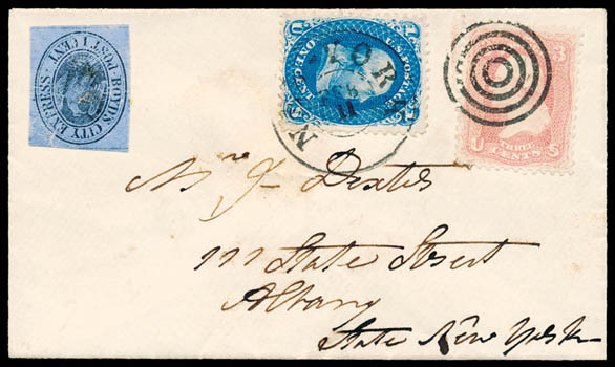 BOYD'S CITY EXPRESS
POST 1 CENT
U 1
S. POSTAGE
ONE CENT
YORK
11
N
3
U THREE CENTS S
Mrs J Dexter
111 State Street
Albany
State New York